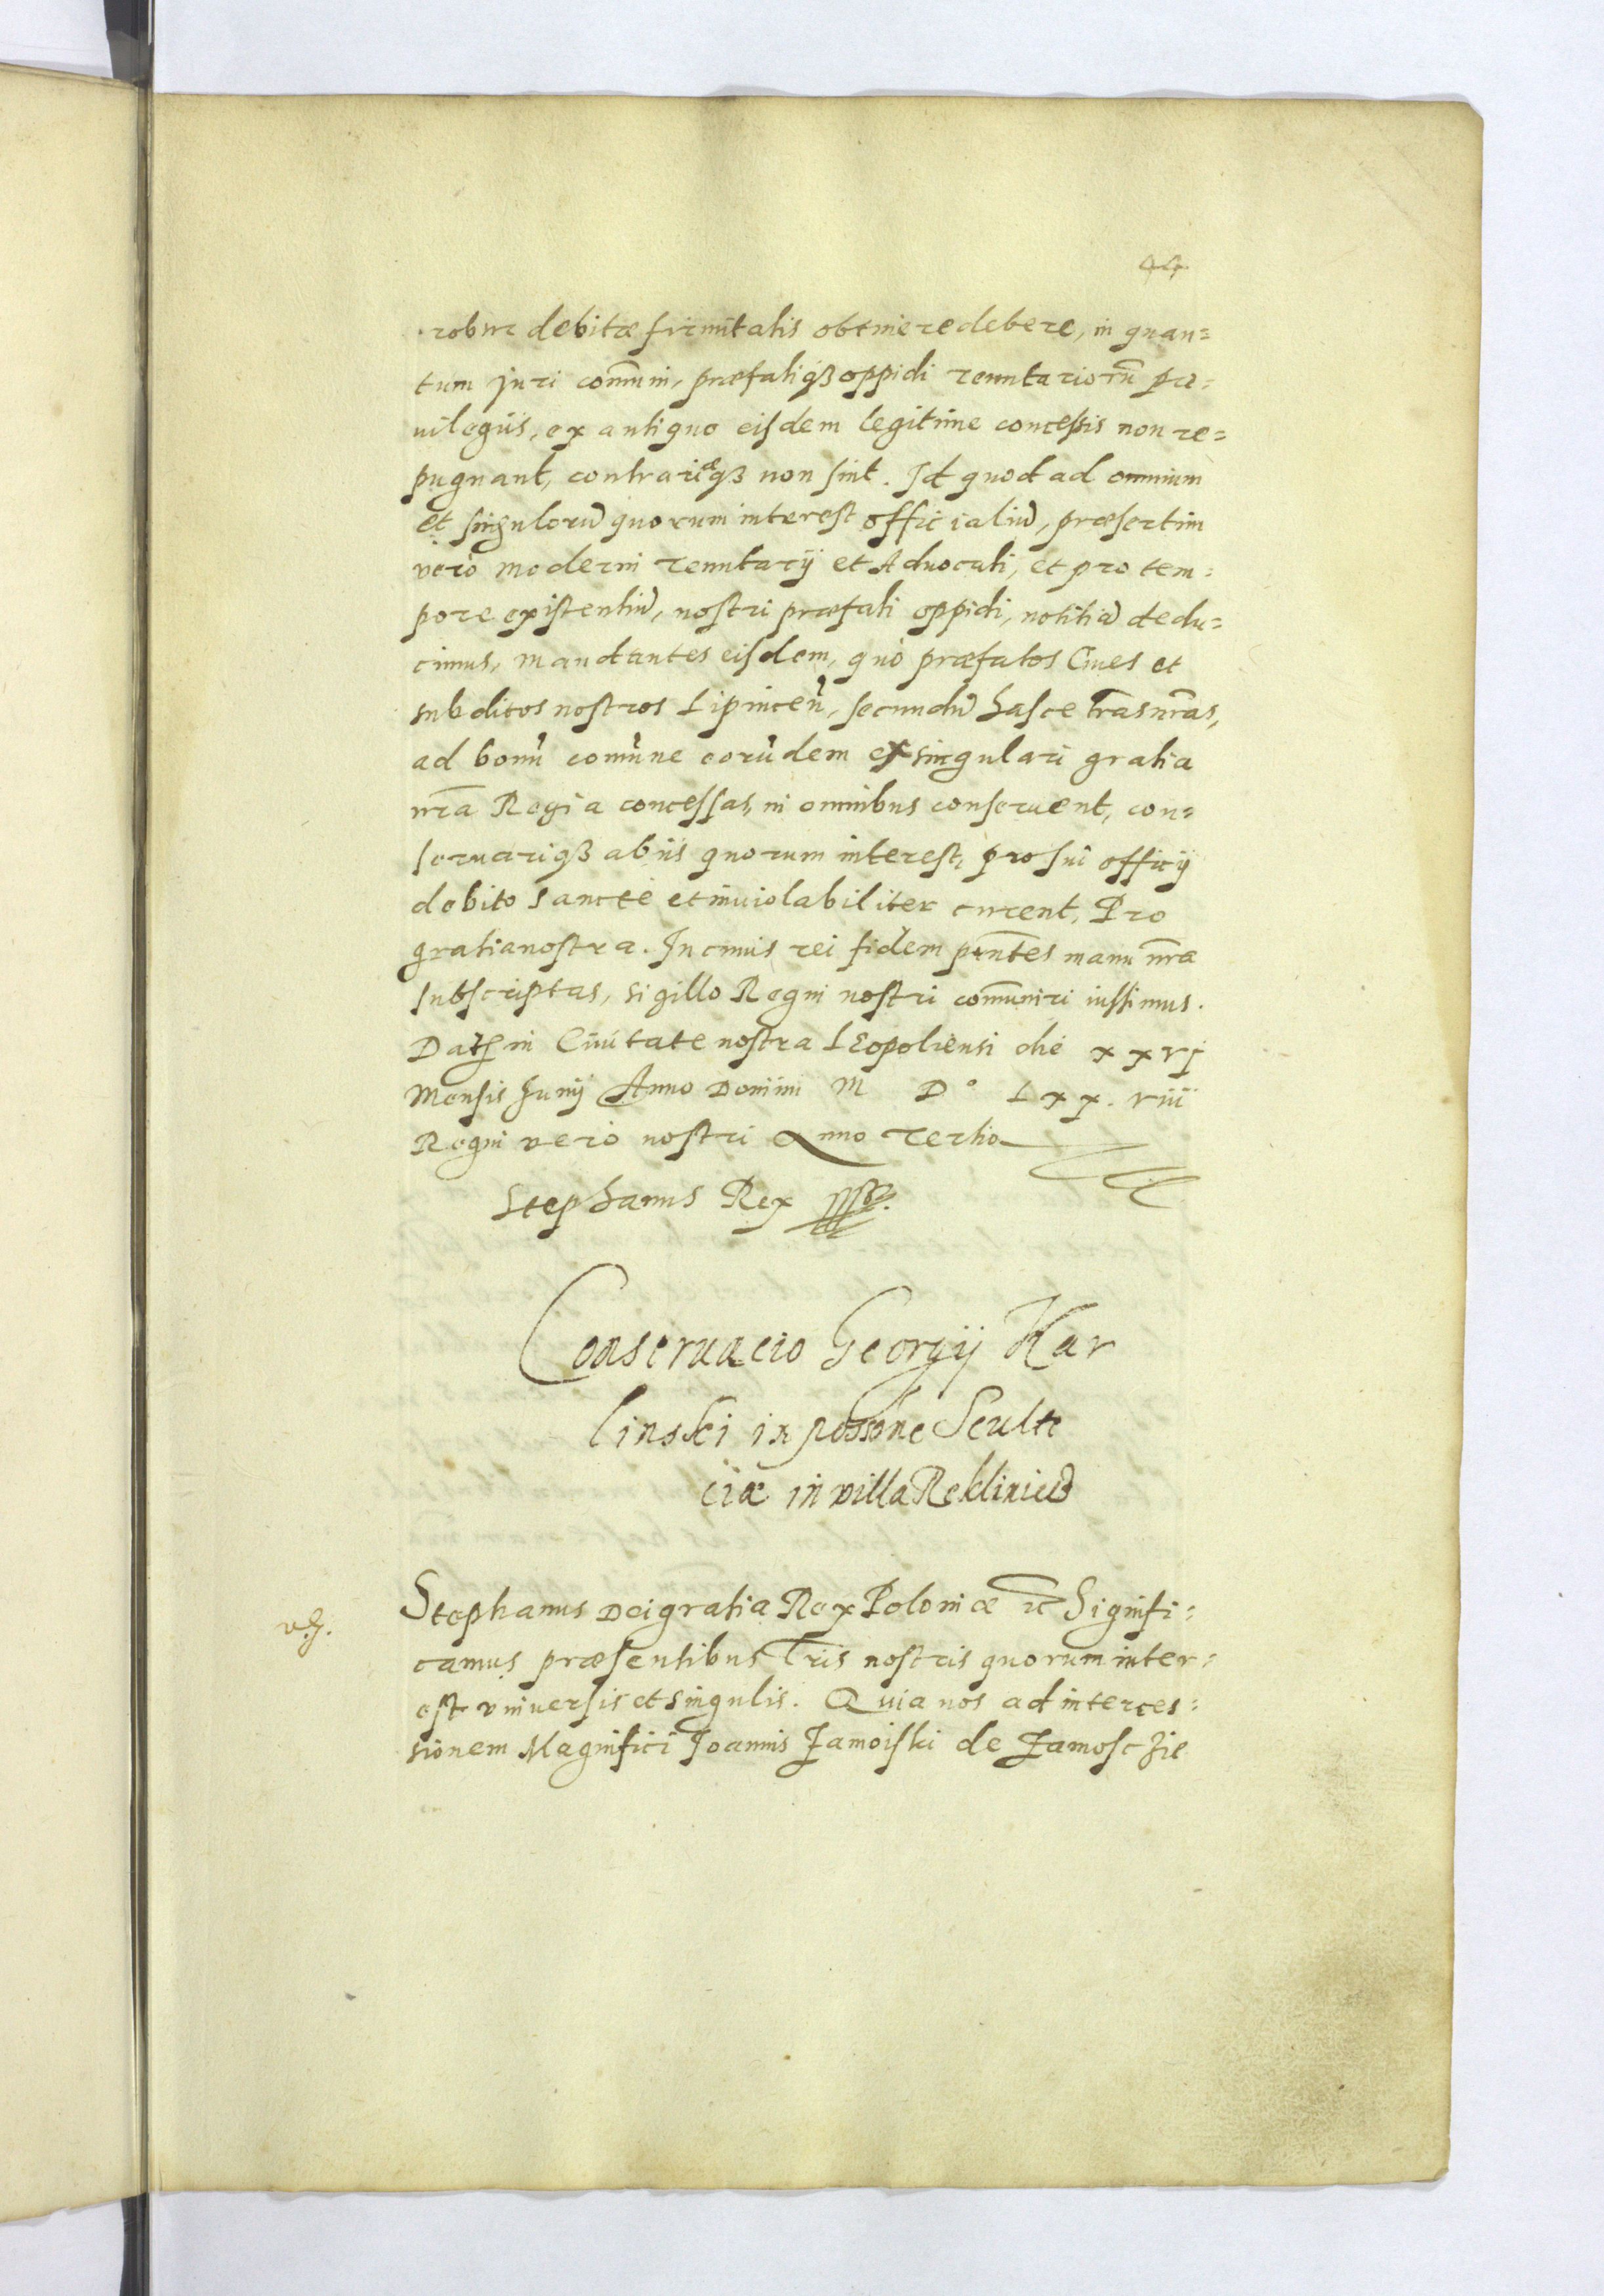 44
robur debitæ firmitatis obtinere debere, in quan=
tum juri com̃uni, præfatiqȝ oppidi tenutariorũ pri=
uilegiis, ex antiquo eisdem legitime concessis non re=
pugnant, contrariæqȝ non sint. Id quod ad omnium
et singulorũ quorum interest officialiũ, præsertim
vero moderni tenutarij et Aduocati, et pro tem=
pore existentiũ, nostri præfati oppidi, notitiã dedu=
cimus, mandantes eisdem, quò præfatos Ciues et
subditos nostros Lipnicen̄, secundũ hasce l̃ras nr̃as,
ad bonũ comũne eorũdem ex singulari gratia
nr̃a Regia concessas, in omnibus conseruent, con=
seruariqȝ ab iis quorum interest, pro sui officij
debito sancte et inuiolabiliter curent, Pro
gratia nostra. In cuius rei fidem pñtes manu nr̃a
subscriptas, sigillo Regni nostri com̃uniri iussimus.
Dat in Ciuitate nostra Leopoliensi die xxvj
Mensis Junij Anno Domini M D° Lxx. viii
Regni vero nostri Anno Tertio
Stephanus Rex sssr.
Conseruacio Georgij Kar
linski in possone Sculte
ciæ in villa Rekliniecz
Stephanus Dei gratia Rex Poloniæ rc̃ Signifi=
camus præsentibus l̃ris nostris quorum inter=
est vniuersis et singulis. Quia nos ad interces=
sionem Magnifici Joannis Zamoiski de Zamosczie